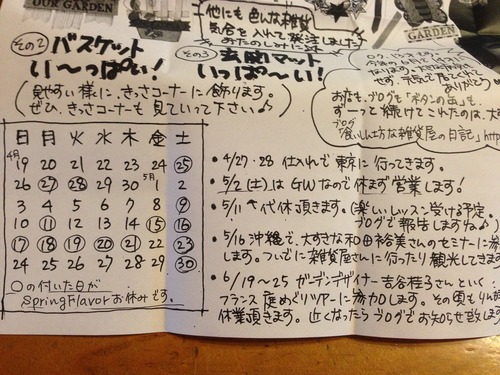 OUR GARDEN
GARDEN
他にも 色んな雑貨
気合を入れて発注しました
その2 バスケット
い〜っぱい!
(見やすい様に、きっさコーナーに飾ります。
ぜひ、きっさコーナーも見ていって下さい♪)
その3 玄関マット
いっぱ〜い!
お店も、ブログも「ボタンの缶」も、
ずーって続けてこれたのは、大
ブログ
食いしん坊な雑貨屋の日記」http
日 月 火 水 木 金 土
4月
19 20 21 22 23 24 25
5月
26 27 28 29 30 1 2
3 4 5 6 7 8 9
10 11 12 13 14 15 16
17 18 19 20 21 22 23
24 25 26 27 28 29 30
○の付いた日が
Spring Flavor お休みです。
・4/27・28 仕入れで東京に行ってきます。
・5/2(土)は GWなので休まず営業します!
・5/11 代休頂きます。(楽しいレッスン受ける予定。
ブログで報告しますね♪)
・5/16 沖縄で、大すきな和田裕美さんのセミナーに参
します。ついでに雑貨屋さんに行ったり観光してきま
・6/19〜25 ガーデンデザイナー吉谷桂子さんといく
フランス庭めぐりツアーに参加します。その間も
休業頂きます。近くなったらブログでお知らせ致しま